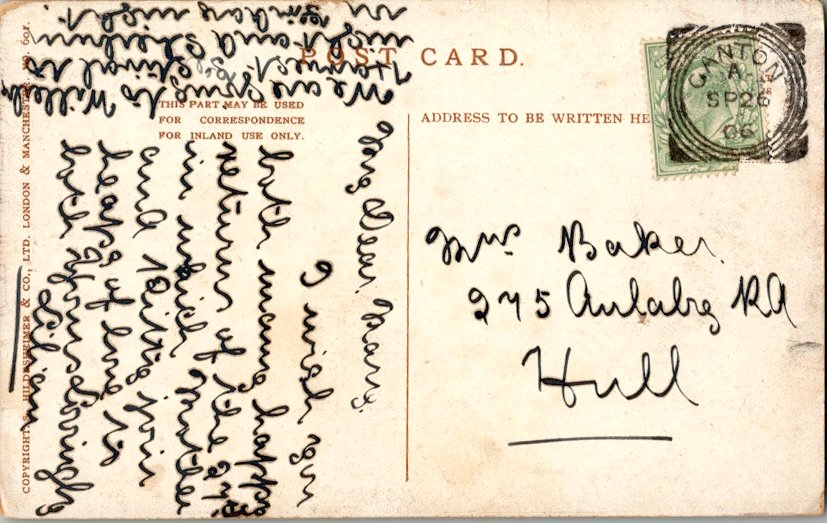 POST CARD.
THIS PART MAY BE USED
FOR CORRESPONDENCE
FOR INLAND USE ONLY.
ADDRESS TO BE WRITTEN HE
CANTON
A
SP 26
06
Mrs Baker.
275 Anlaby Rd
Hull
My Dear Mary.
I wish you
both many happy
returns of the 27th
in which Gertie
and Percy join
heaps of love to
both Yours lovingly
Lilian
We are going to Willey's
Harvest Festival
night and
in
night.
COPYRIGHT S. HILDESHEIMER & CO., LTD. LONDON & MANCHESTER. No 601.